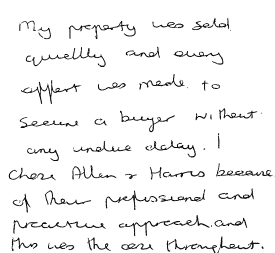 My property was sold
quickly and every
effort was made to
secure a buyer without
any undue delay. I
chose Allen & Harris because
of their professional and
proactive approach and
this was the case throughout.